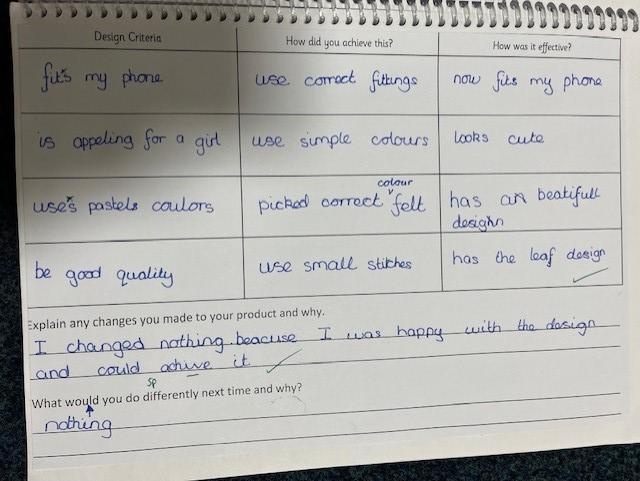 Design Criteria How did you achieve this? How was it effective?
fit's my phone use correct fittings now fits my phone
is appeling for a girl use simple colours looks cute
colour
use's pastels coulors picked correct felt has an beatifull
desighn
be good quality use small stitches has the leaf design
Explain any changes you made to your product and why.
I changed nothing beacuse I was happy with the design
and could achive it
sp
What would you do differently next time and why?
nothing